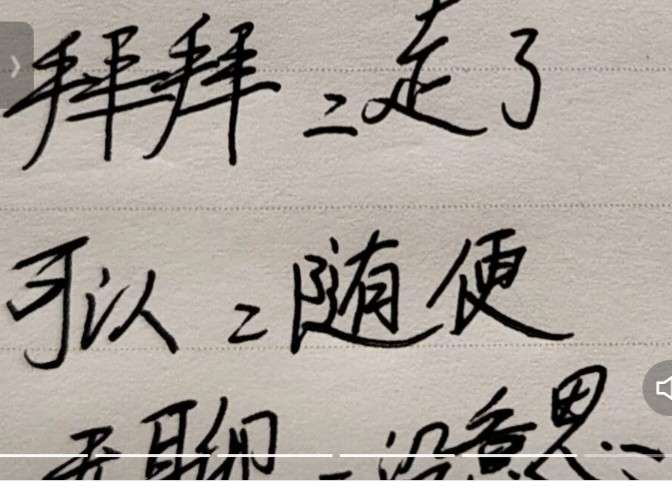 拜拜=走了
可以=随便
无聊=没意思